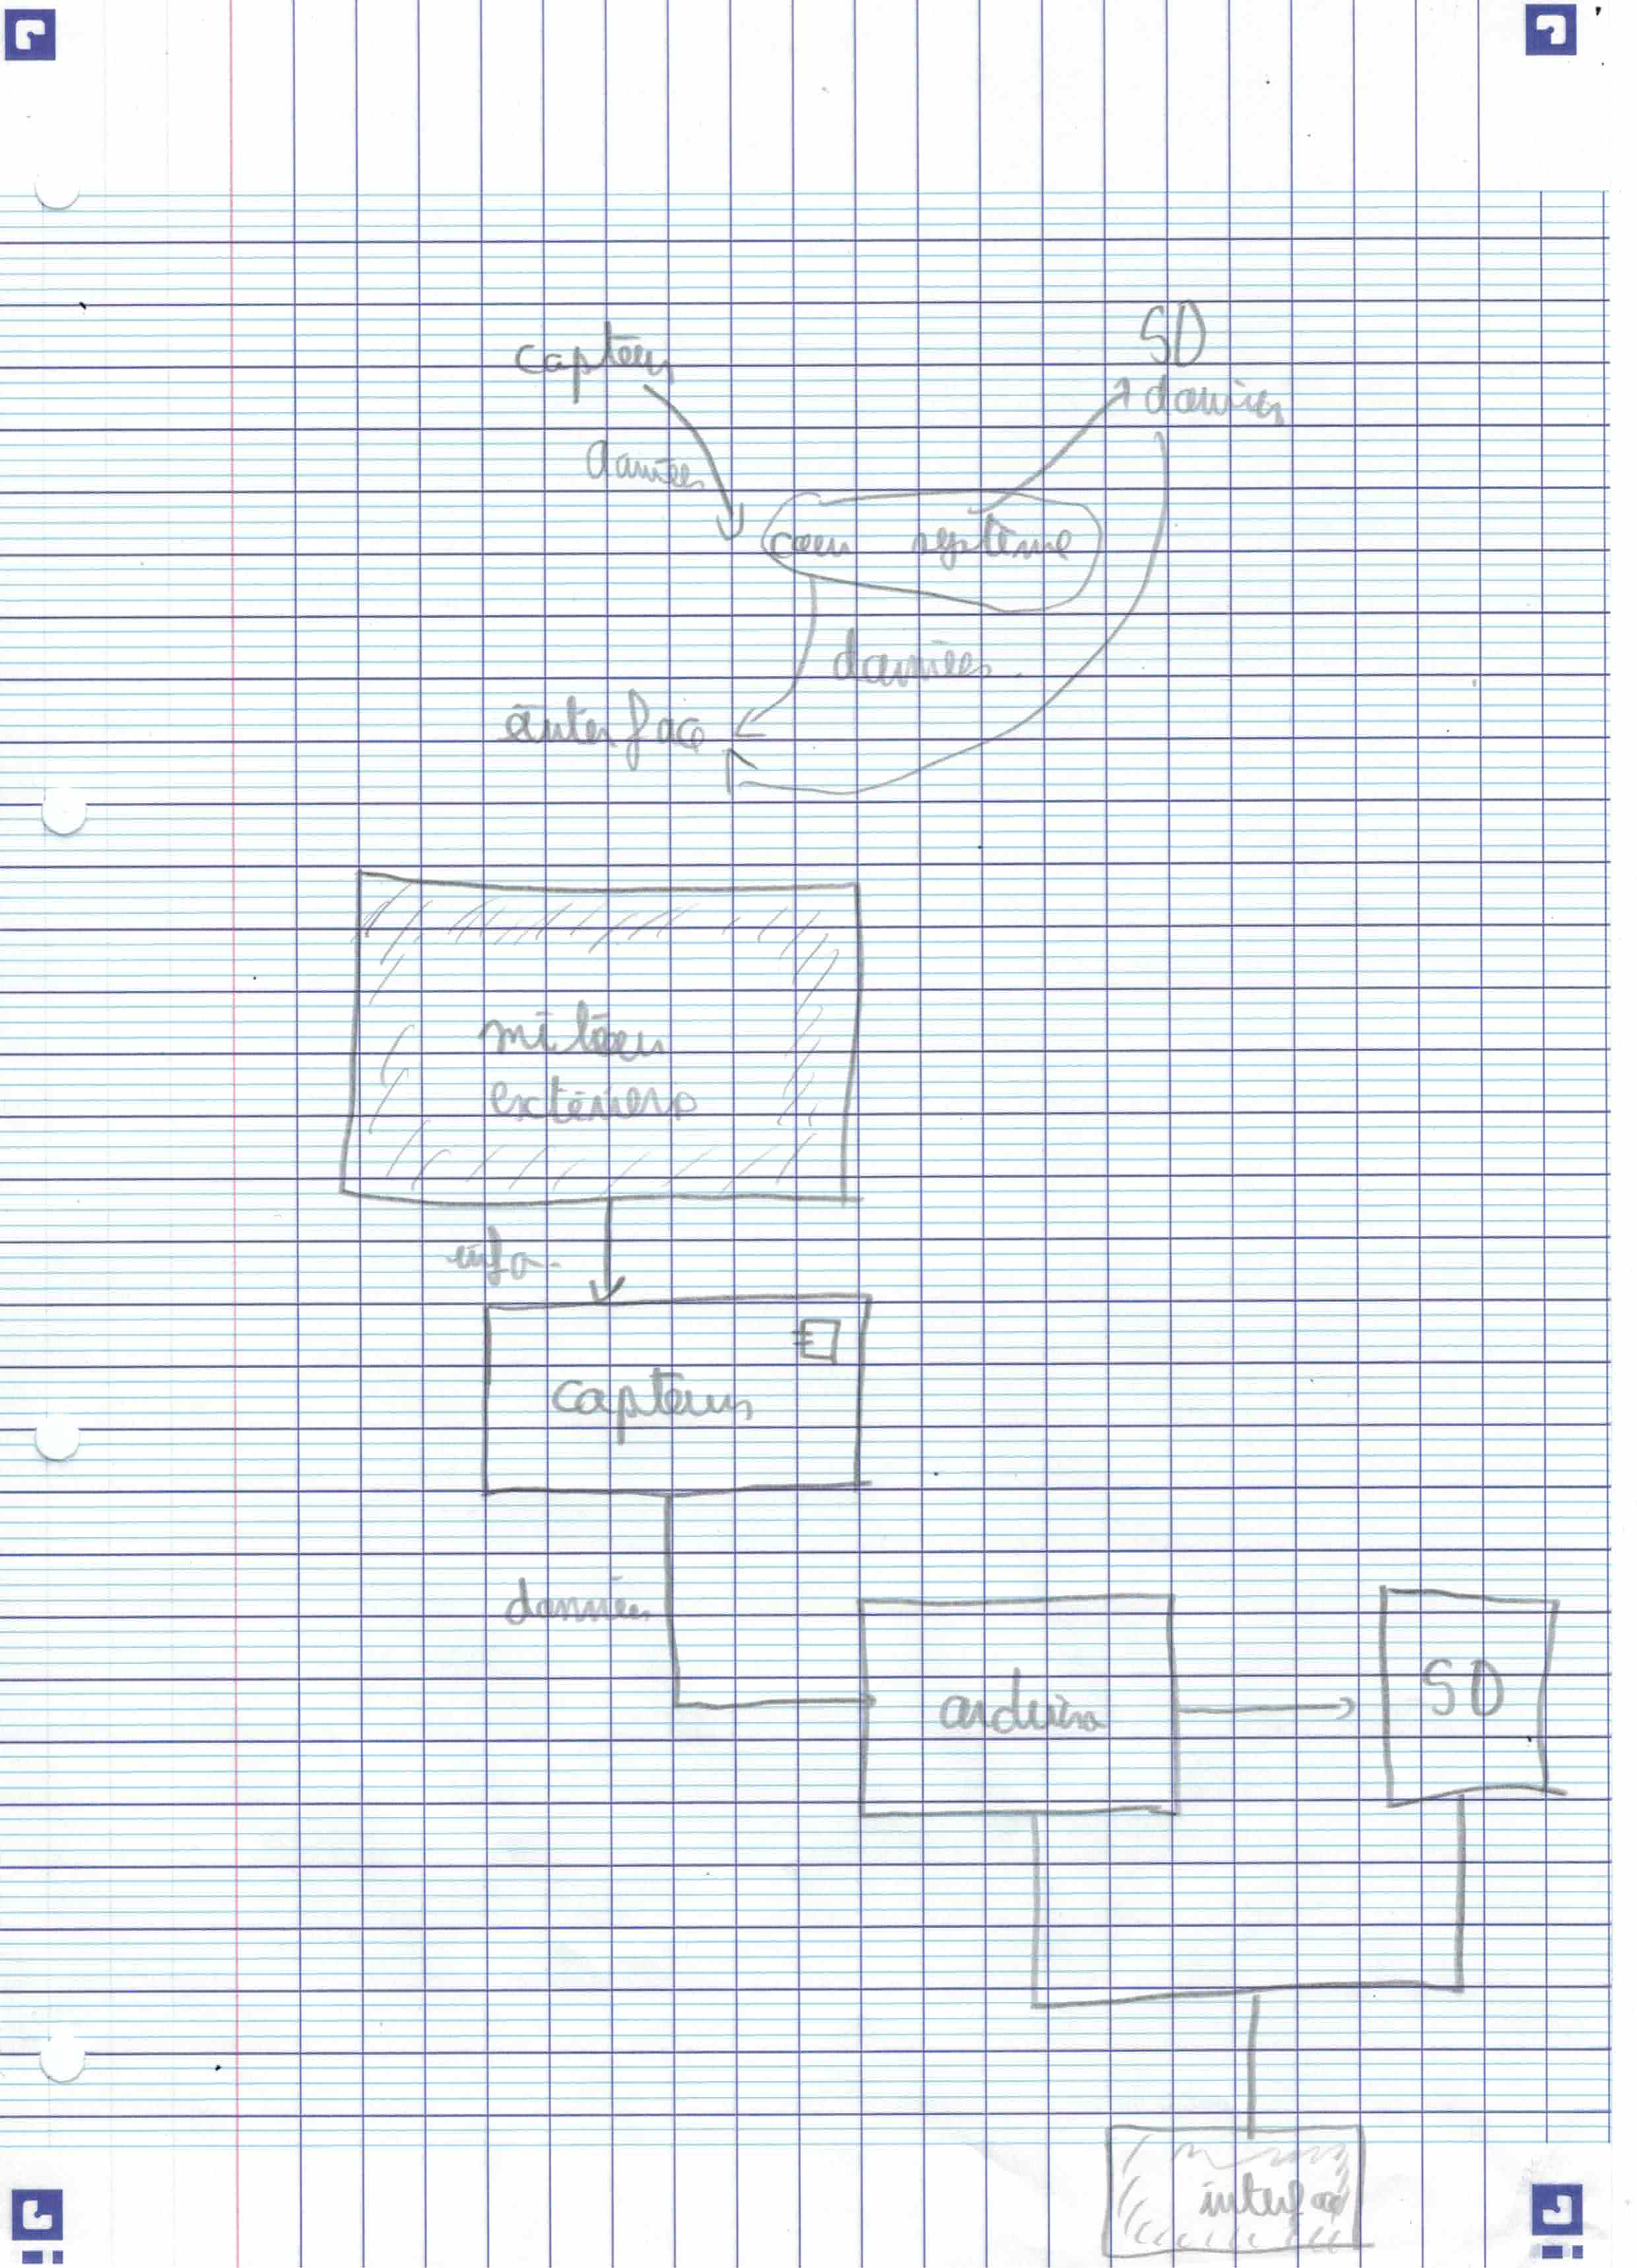 capteurs
SD
données
données
coeur système
données
interface
milieu
extérieurs
info.
capteurs
données
arduino
SD
interface